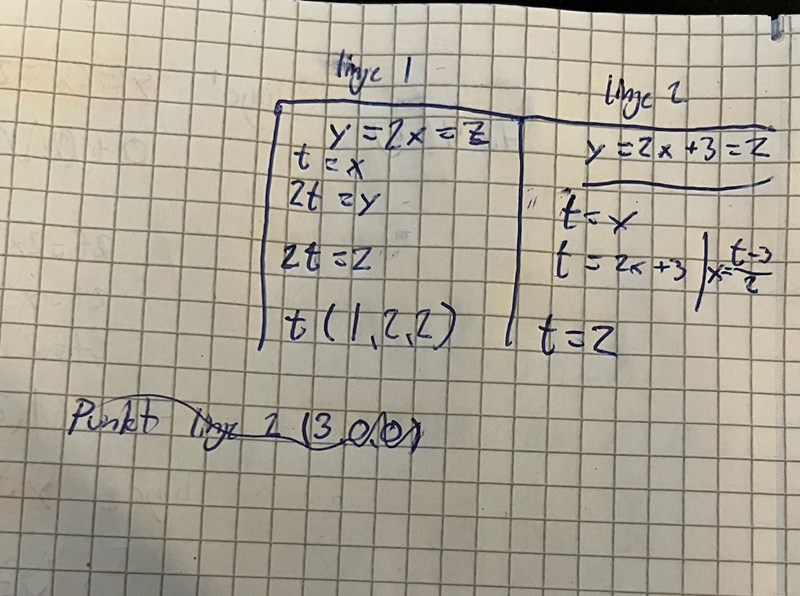 linje 1
y = 2x = z
t = x
2t = y
2t = z
t (1, 2, 2)
linje 2
y = 2x + 3 = z
t = x
t = 2x + 3 | x = t-3/2
t = z
Punkt linje 2 (3, 0, 0)